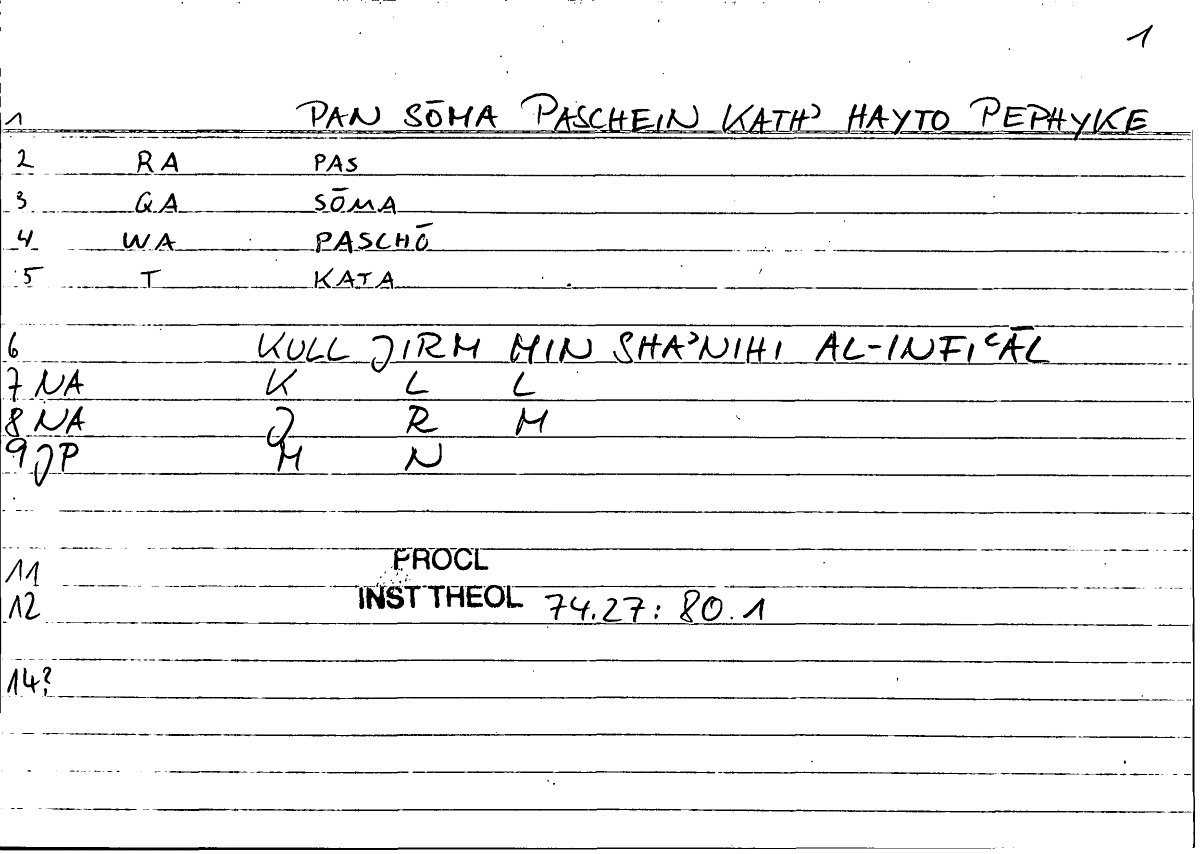 1
1 PAN SŌMA PASCHEIN KATHʾ HAYTO PEPHYKE
2 RA PAS
3 QA SŌMA
4 WA PASCHŌ
5 T KATA
6 KULL JIRM MIN SHAʾNIHI AL-INFIʿĀL
7 NA K L L
8 NA J R M
9 JP M N
11 PROCL
12 INST THEOL 74.27: 80.1
14?